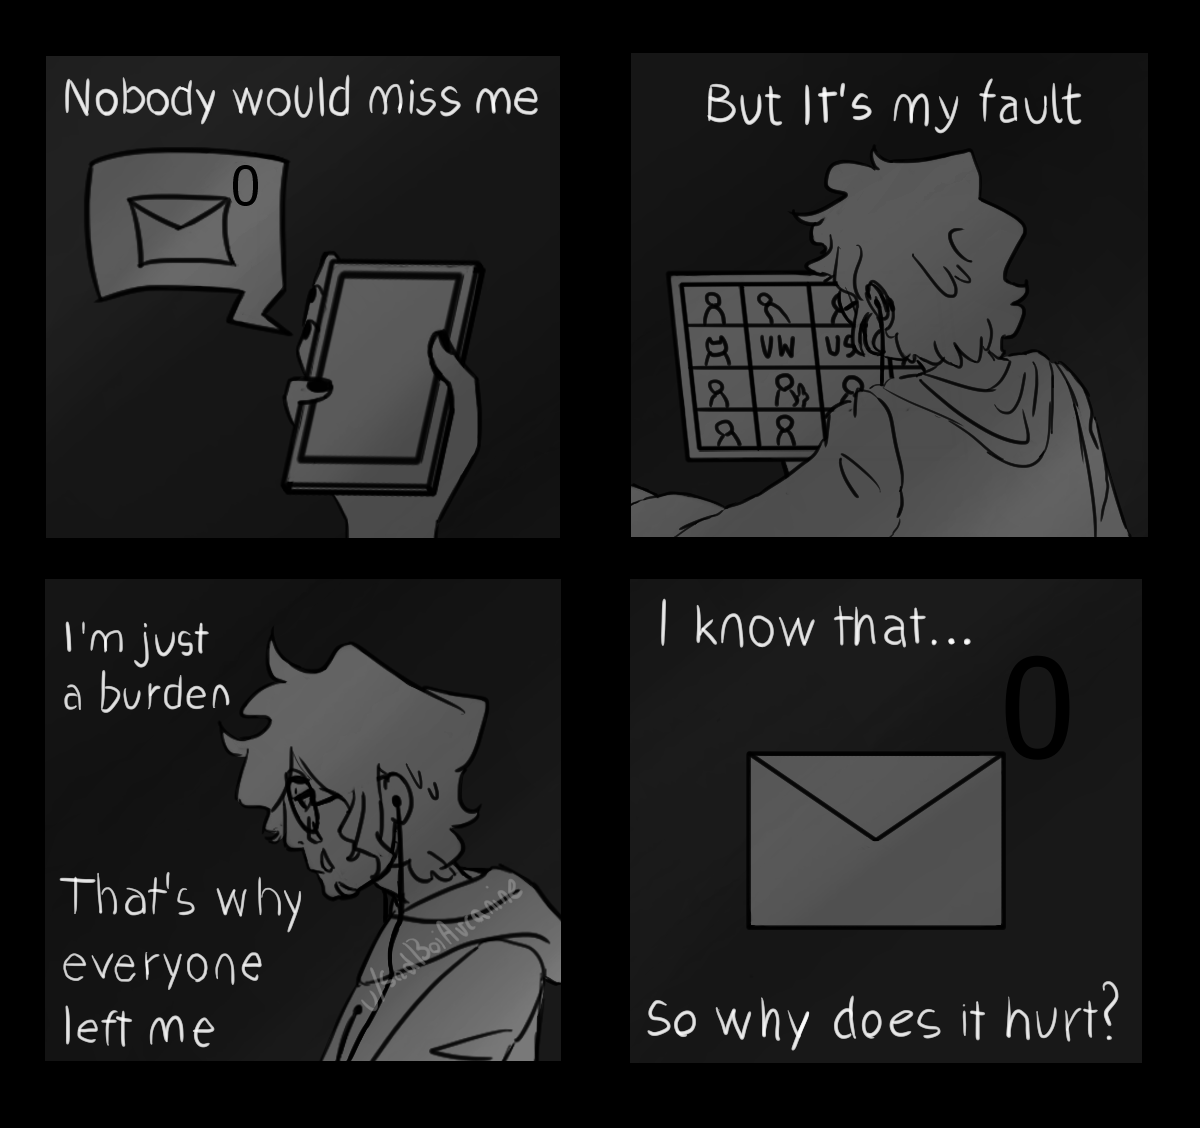 Nobody would miss me
0
But It's my fault
VW
US
I'm just
a burden
That's why
everyone
left me
u/SadBoiAvcanine
I know that...
0
So why does it hurt?